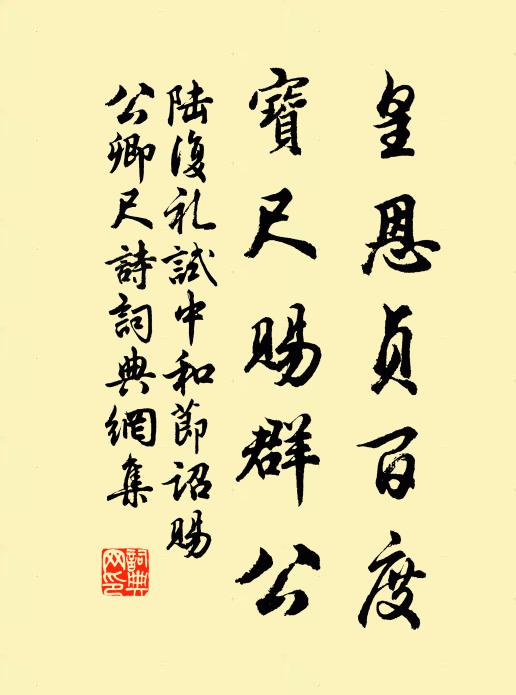 皇恩貞百度
寶尺賜群公
陸復礼試中和節詔賜
公卿尺詩詞典網集
詞典
网印